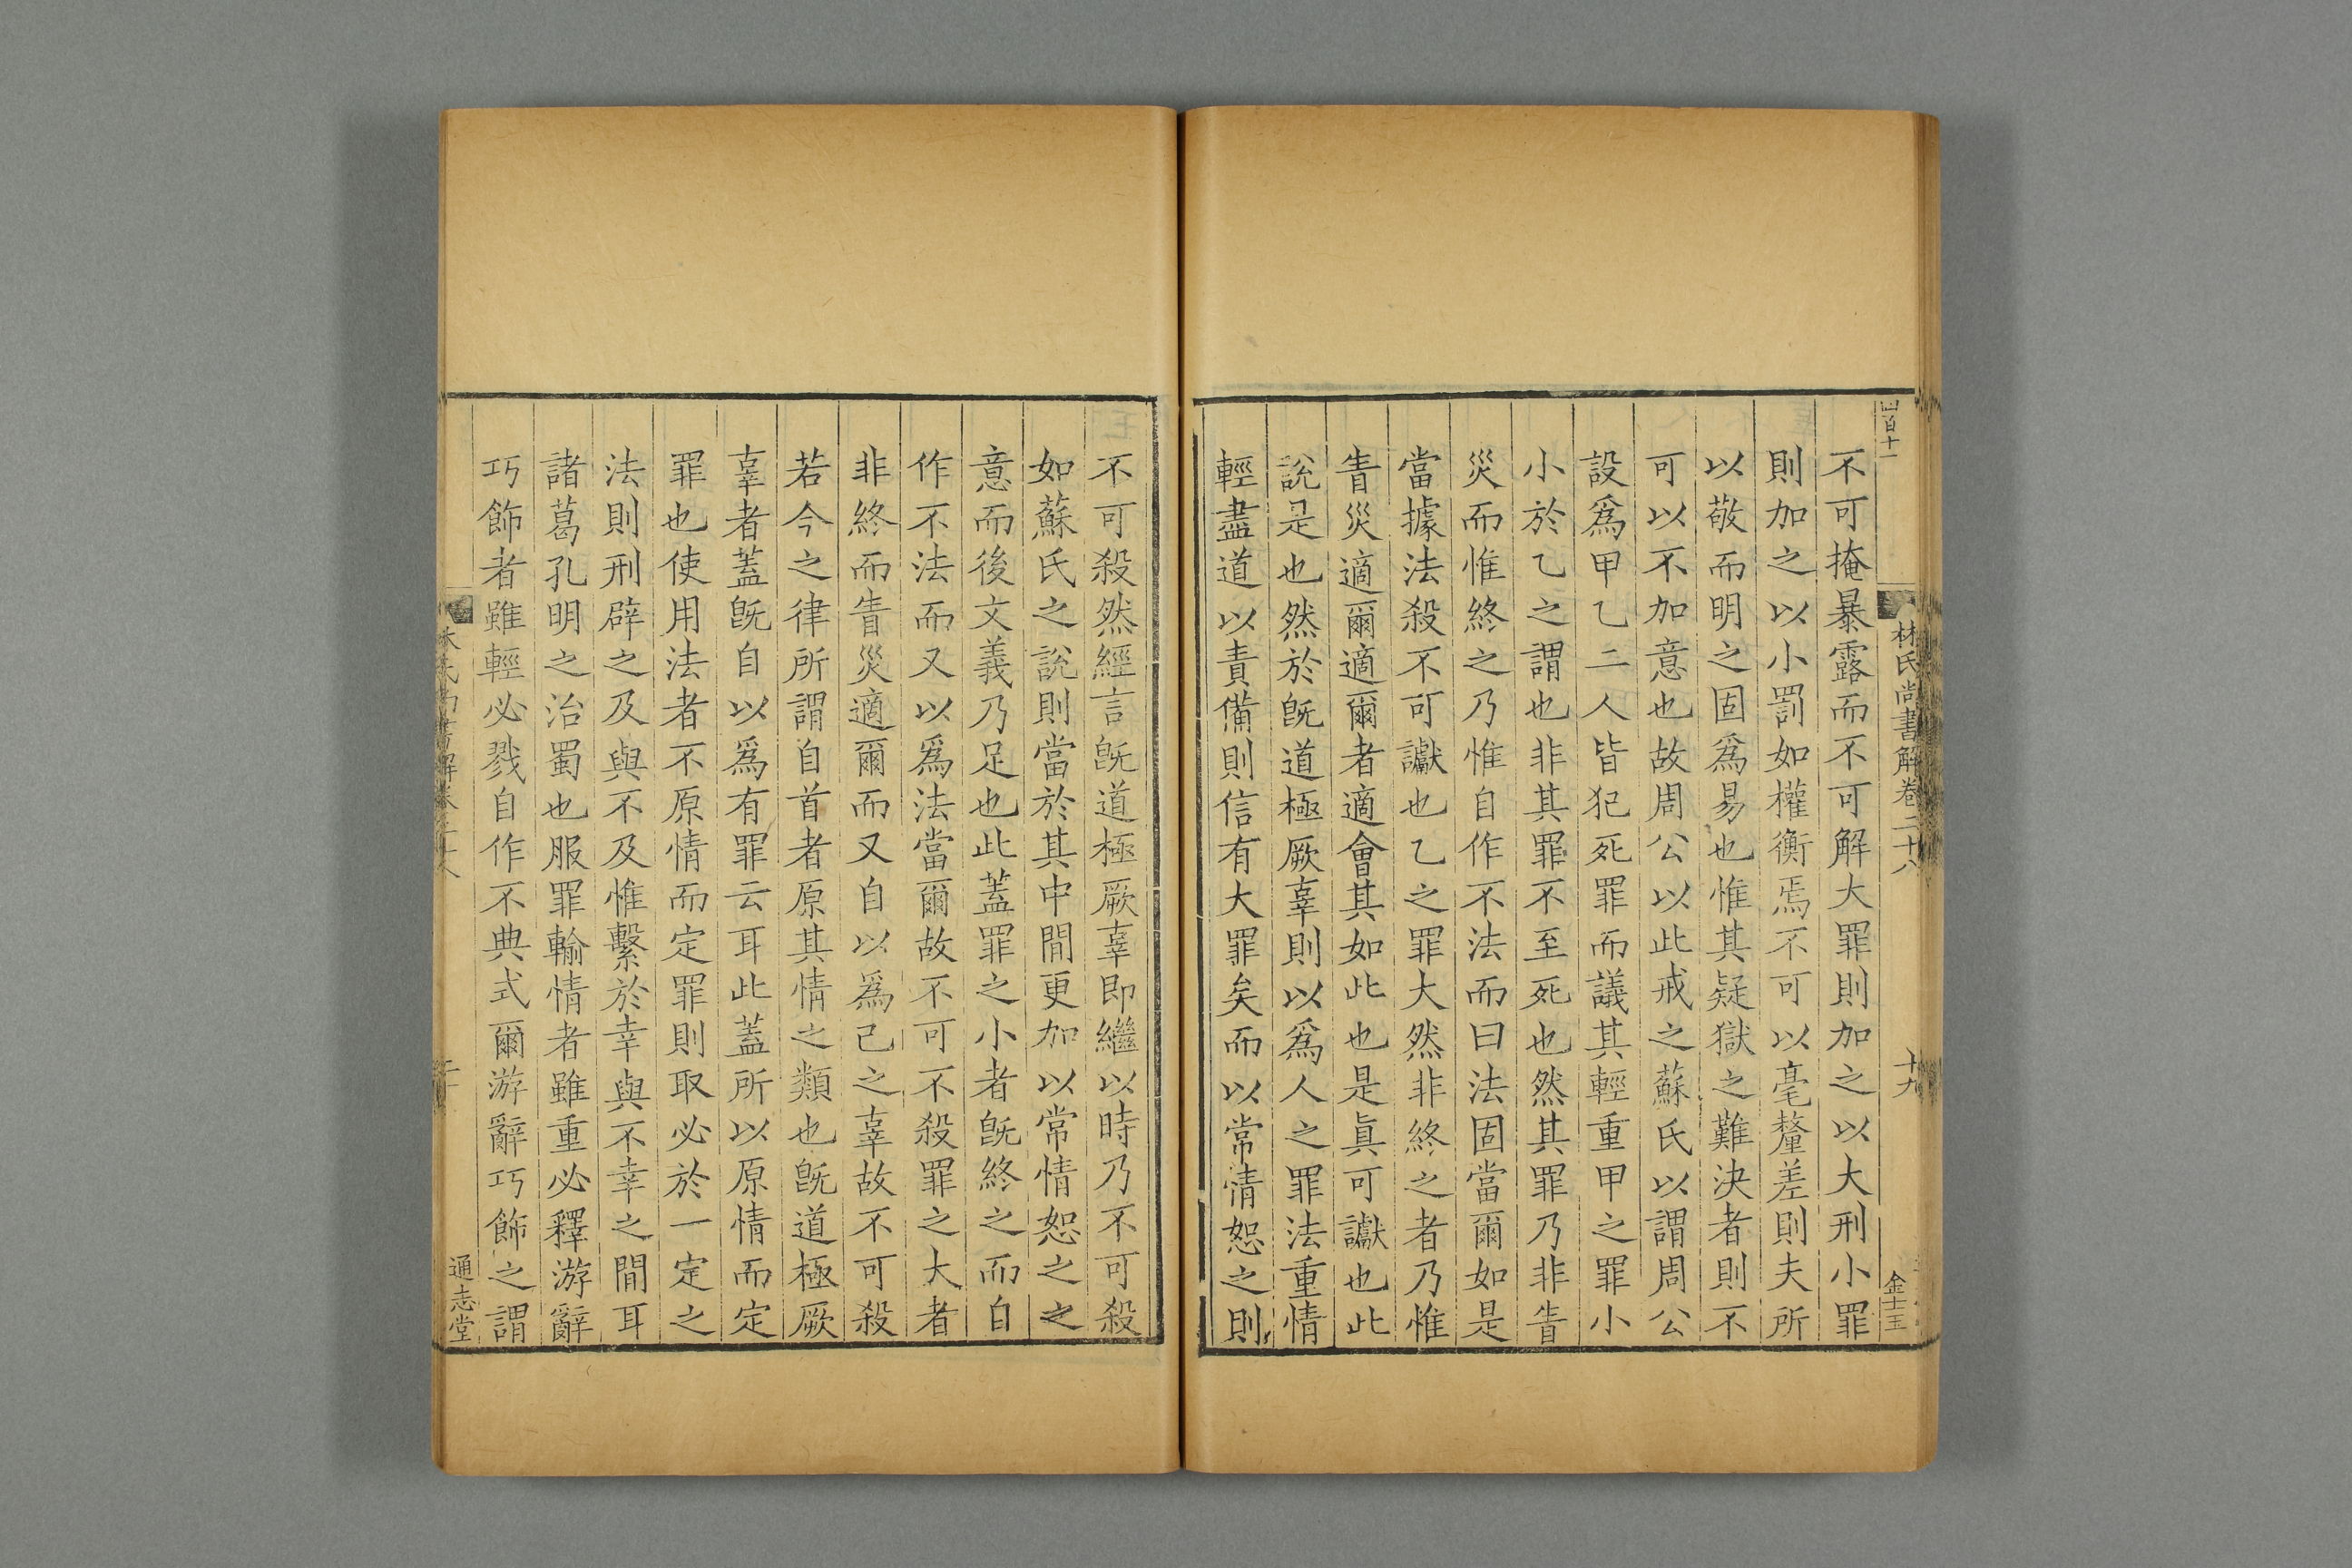 林氏尚書解卷二十八
十九
金士玉
不可掩暴露而不可解大罪則加之以大刑小罪
則加之以小罰如權衡焉不可以毫釐差則夫所
以敬而明之固爲易也惟其疑獄之難決者則不
可以不加意也故周公以此戒之蘇氏以謂周公
設爲甲乙二人皆犯死罪而議其輕重甲之罪小
小於乙之謂也非其罪不至死也然其罪乃非眚
災而惟終之乃惟自作不法而曰法固當爾如是
當據法殺不可讞也乙之罪大然非終之者乃惟
眚災適爾適爾者適會其如此也是眞可讞也此
說是也然於旣道極厥辜則以爲人之罪法重情
輕盡道以責備則信有大罪矣而以常情恕之則
不可殺然經言旣道極厥辜即繼以時乃不可殺
如蘇氏之說則當於其中閒更加以常情恕之之
意而後文義乃足也此蓋罪之小者旣終之而自
作不法而又以爲法當爾故不可不殺罪之大者
非終而眚災適爾而又自以爲己之辜故不可殺
若今之律所謂自首者原其情之類也旣道極厥
辜者蓋旣自以爲有罪云耳此蓋所以原情而定
罪也使用法者不原情而定罪則取必於一定之
法則刑辟之及與不及惟繫於幸與不幸之閒耳
諸葛孔明之治蜀也服罪輸情者雖重必釋游辭
巧飾者雖輕必戮自作不典式爾游辭巧飾之謂
通志堂